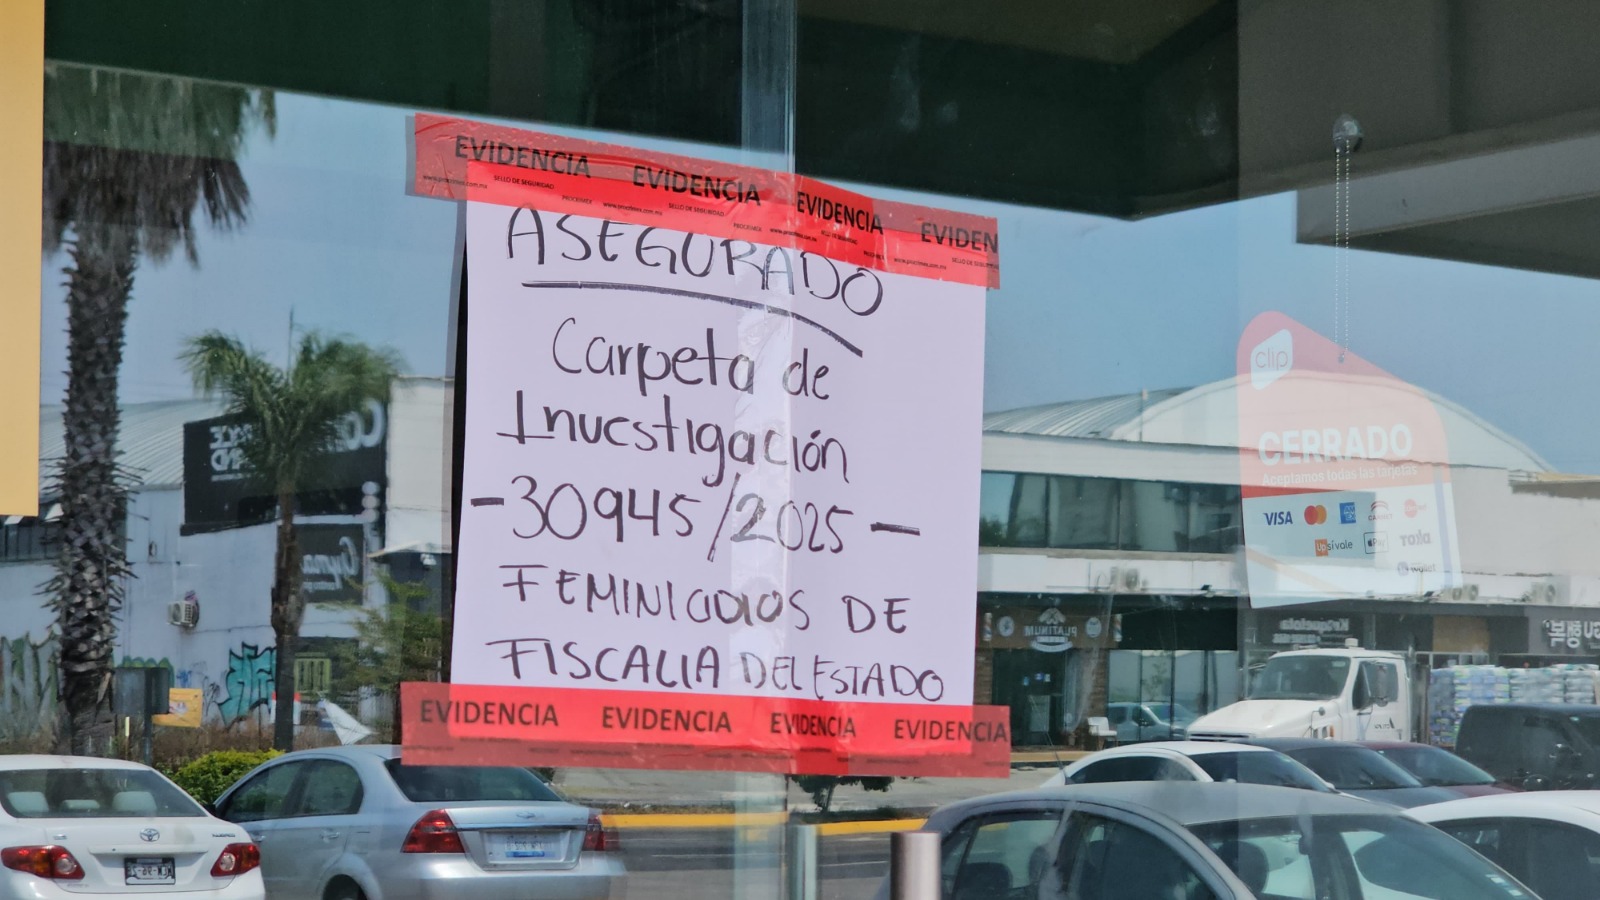 EVIDENCIA EVIDENCIA EVIDENCIA EVIDEN
SELLO DE SEGURIDAD
ASEGURADO
Carpeta de
Investigación
-30945/2025-
FEMINICIDIOS DE
FISCALIA DEL ESTADO
EVIDENCIA EVIDENCIA EVIDENCIA EVIDENCIA
clip
CERRADO
Aceptamos todas las tarjetas
VISA
CARNET
Sí vale
Pay
PLATINUM